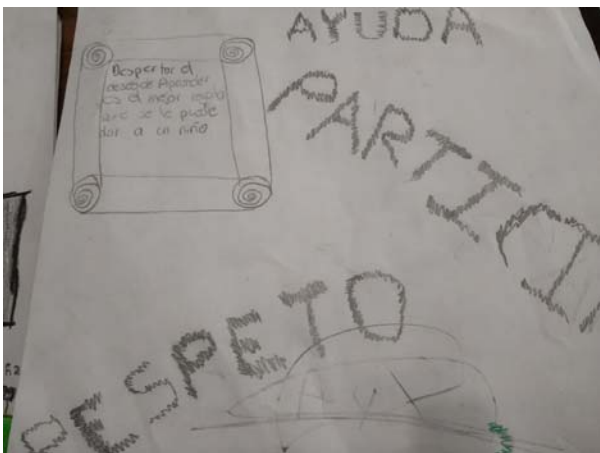 AYUDA
Despertar el
deseo de Aprender
es el mejor
que se le puede
dar a un niño
PARTICI
RESPETO
AyX